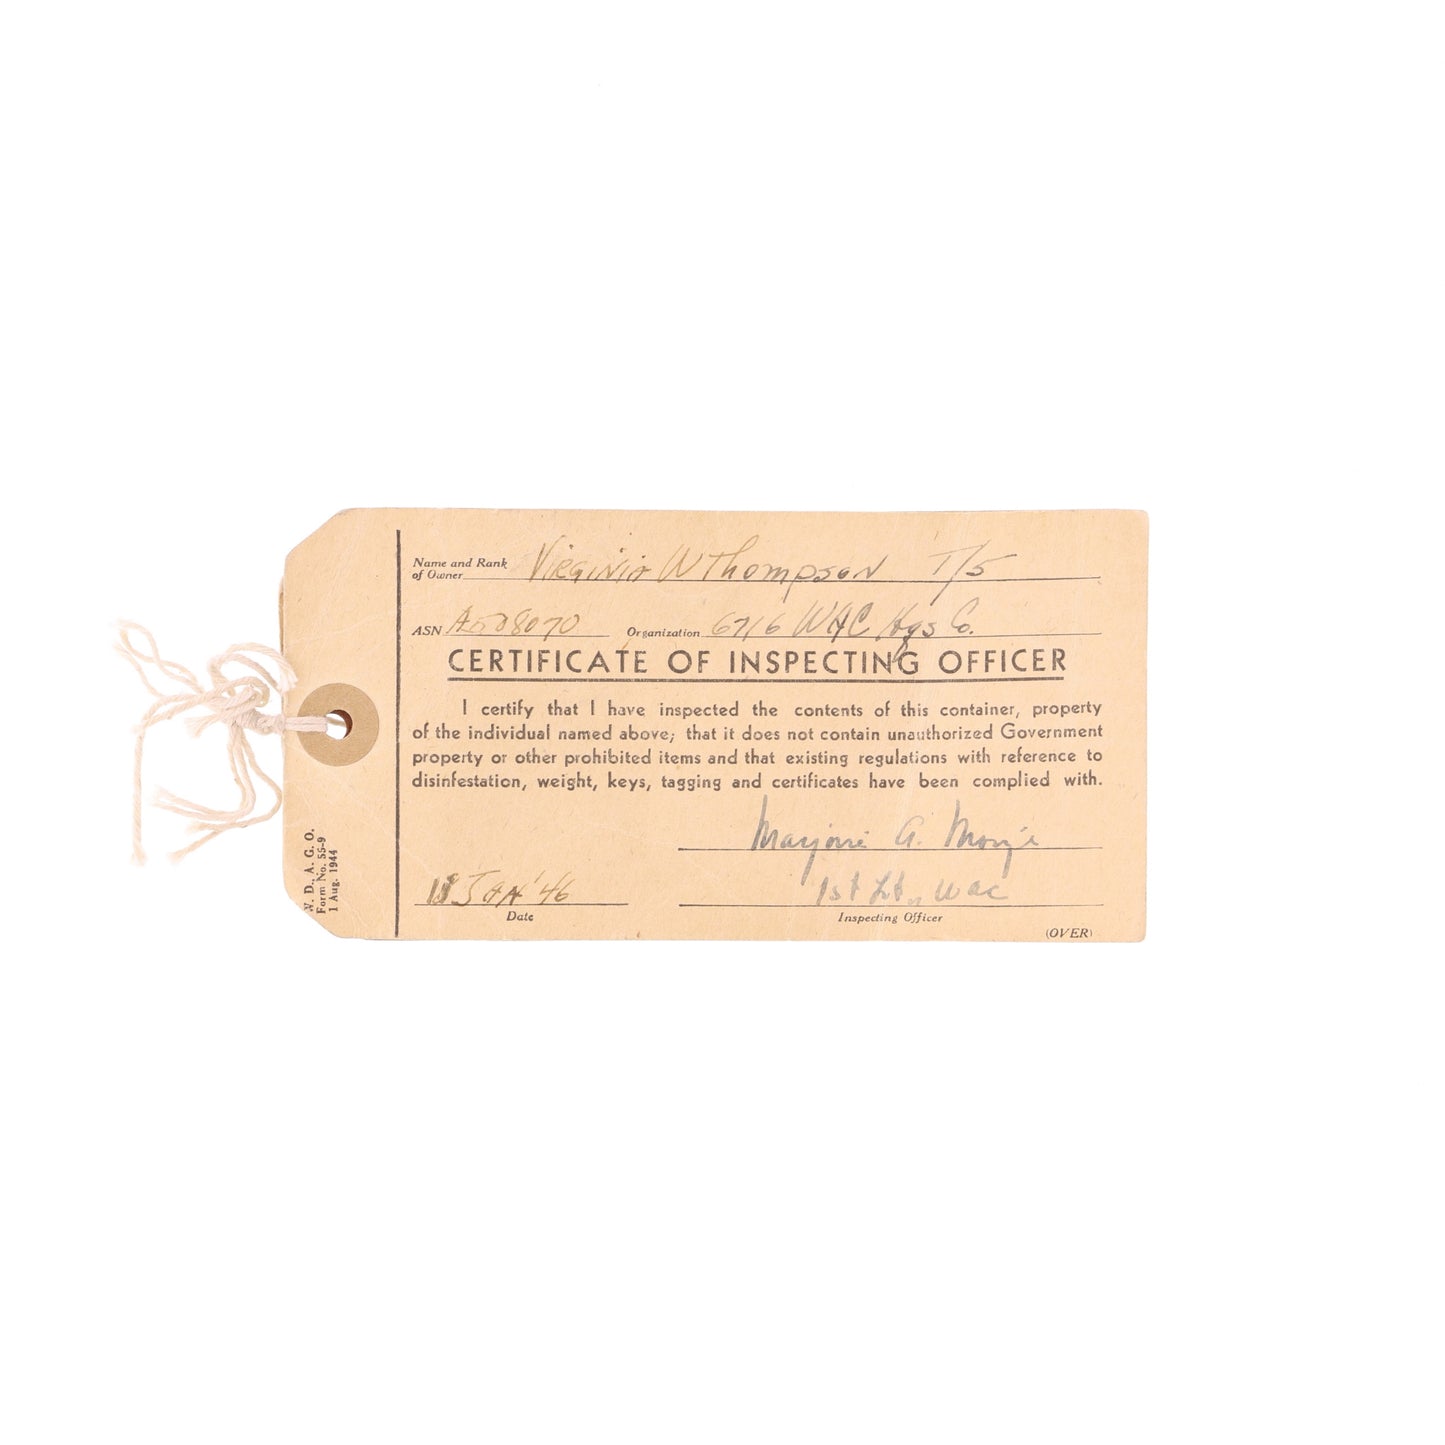 Name and Rank of Owner Virginia W Thompson T/5
ASN A508070 Organization 6716 WAC Hqs Co.
CERTIFICATE OF INSPECTING OFFICER
I certify that I have inspected the contents of this container, property
of the individual named above; that it does not contain unauthorized Government
property or other prohibited items and that existing regulations with reference to
disinfestation, weight, keys, tagging and certificates have been complied with.
Marjorie A.
Jan '46 1st Lt, WAC
Date Inspecting Officer
(OVER)
W. D., A. G. O.
Form No. 55-9
1 Aug. 1944